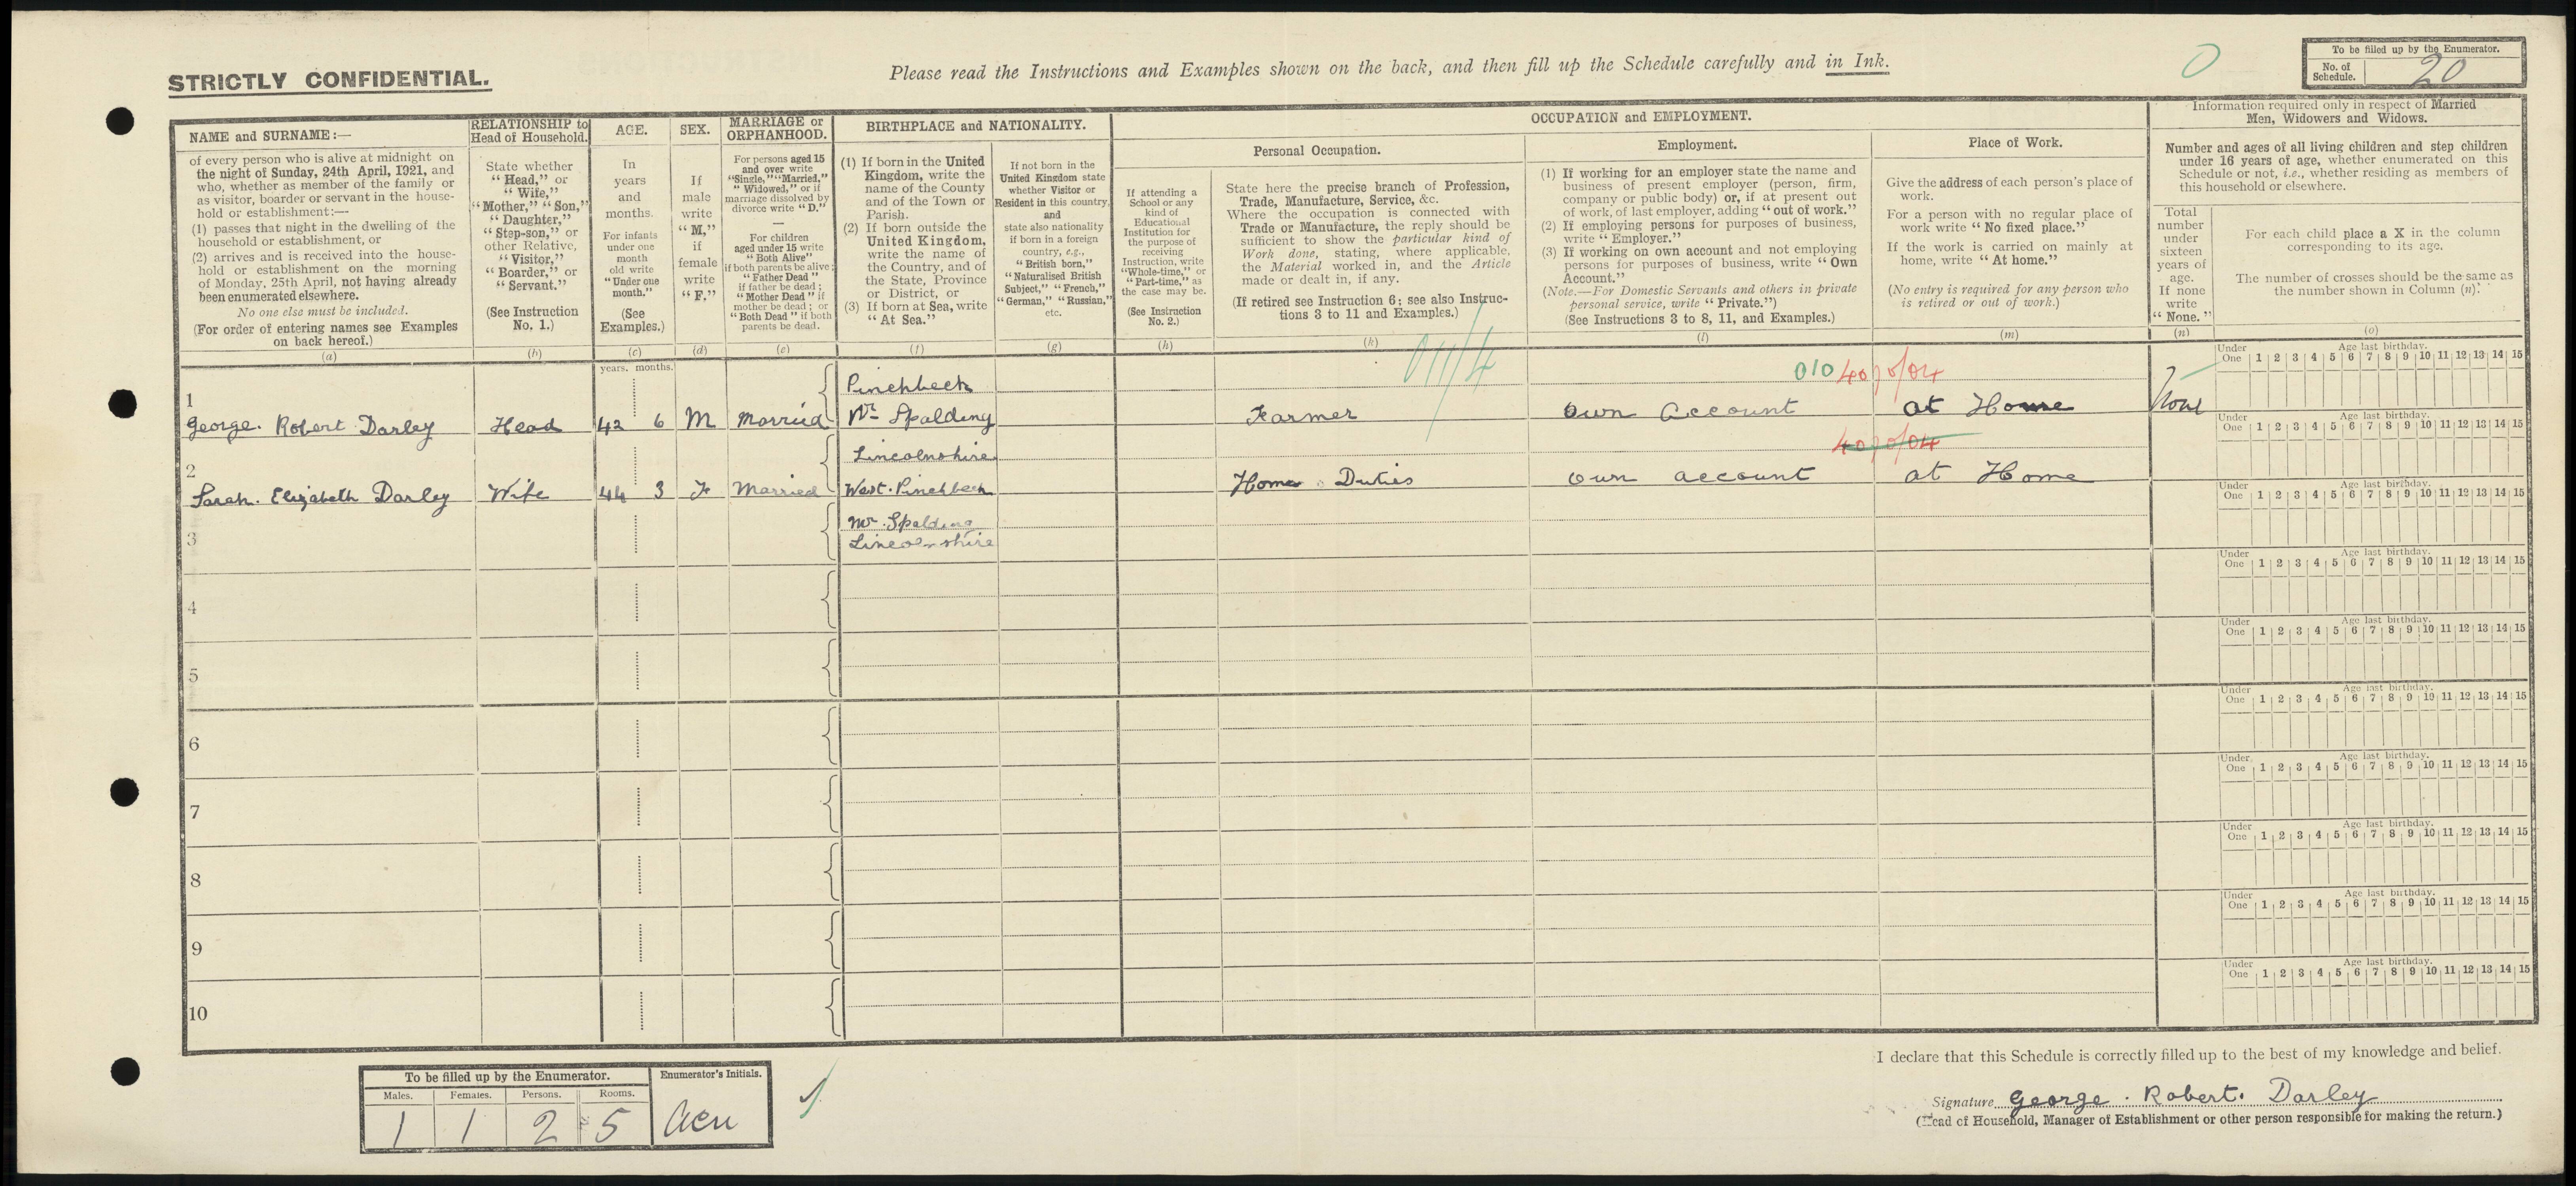 STRICTLY CONFIDENTIAL.
Please read the Instructions and Examples shown on the back, and then fill up the Schedule carefully and in Ink.
0
To be filled up by the Enumerator.
No. of Schedule. 20
NAME and SURNAME:—
of every person who is alive at midnight on
the night of Sunday, 24th April, 1921, and
who, whether as member of the family or
as visitor, boarder or servant in the house-
hold or establishment:—
(1) passes that night in the dwelling of the
household or establishment, or
(2) arrives and is received into the house-
hold or establishment on the morning
of Monday, 25th April, not having already
been enumerated elsewhere.
No one else must be included.
(For order of entering names see Examples
on back hereof.)
(a)
RELATIONSHIP to
Head of Household.
State whether
"Head," or
"Wife,"
"Mother," "Son,"
"Daughter,"
"Step-son," or
other Relative,
"Visitor,"
"Boarder," or
"Servant."
(See Instruction
No. 1.)
(b)
AGE.
In
years
and
months.
For infants
under one
month
old write
"Under one
month."
(See
Examples.)
(c)
SEX.
If
male
write
"M,"
if
female
write
"F."
(d)
MARRIAGE or
ORPHANHOOD.
For persons aged 15
and over write
"Single," "Married,"
"Widowed," or if
marriage dissolved by
divorce write "D."
—
For children
aged under 15 write
"Both Alive"
if both parents be alive;
"Father Dead"
if father be dead;
"Mother Dead" if
mother be dead; or
"Both Dead" if both
parents be dead.
(e)
BIRTHPLACE and NATIONALITY.
(1) If born in the United
Kingdom, write the
name of the County
and of the Town or
Parish.
(2) If born outside the
United Kingdom,
write the name of
the Country, and of
the State, Province
or District, or
(3) If born at Sea, write
"At Sea."
(f)
If not born in the
United Kingdom state
whether Visitor or
Resident in this country,
and
state also nationality
if born in a foreign
country, e.g.,
"British born,"
"Naturalised British
Subject," "French,"
"German," "Russian,"
etc.
(g)
OCCUPATION and EMPLOYMENT.
If attending a
School or any
kind of
Educational
Institution for
the purpose of
receiving
Instruction, write
"Whole-time," or
"Part-time," as
the case may be.
(See Instruction
No. 2.)
(h)
Personal Occupation.
State here the precise branch of Profession,
Trade, Manufacture, Service, &c.
Where the occupation is connected with
Trade or Manufacture, the reply should be
sufficient to show the particular kind of
Work done, stating, where applicable,
the Material worked in, and the Article
made or dealt in, if any.
(If retired see Instruction 6; see also Instruc-
tions 3 to 11 and Examples.)
(k)
Employment.
(1) If working for an employer state the name and
business of present employer (person, firm,
company or public body) or, if at present out
of work, of last employer, adding "out of work."
(2) If employing persons for purposes of business,
write "Employer."
(3) If working on own account and not employing
persons for purposes of business, write "Own
Account."
(Note.—For Domestic Servants and others in private
personal service, write "Private.")
(See Instructions 3 to 8, 11, and Examples.)
(l)
Place of Work.
Give the address of each person's place of
work.
For a person with no regular place of
work write "No fixed place."
If the work is carried on mainly at
home, write "At home."
(No entry is required for any person who
is retired or out of work.)
(m)
Information required only in respect of Married
Men, Widowers and Widows.
Number and ages of all living children and step children
under 16 years of age, whether enumerated on this
Schedule or not, i.e., whether residing as members of
this household or elsewhere.
Total
number
under
sixteen
years of
age.
If none
write
"None."
(n)
For each child place a X in the column
corresponding to its age.
The number of crosses should be the same as
the number shown in Column (n).
(o)
years. months.
Under One Age last birthday. 1 2 3 4 5 6 7 8 9 10 11 12 13 14 15
011/4
010 40
1 George. Robert Darley Head 42 6 M Married Pinchbeck
Nr Spalding
Lincolnshire
Farmer own Account at Home None
Under One Age last birthday. 1 2 3 4 5 6 7 8 9 10 11 12 13 14 15
2 Sarah. Elizabeth Darley Wife 44 3 F Married West. Pinchbeck
Nr. Spalding
Lincolnshire
Home Duties own account at Home
Under One Age last birthday. 1 2 3 4 5 6 7 8 9 10 11 12 13 14 15
3
Under One Age last birthday. 1 2 3 4 5 6 7 8 9 10 11 12 13 14 15
4
Under One Age last birthday. 1 2 3 4 5 6 7 8 9 10 11 12 13 14 15
5
Under One Age last birthday. 1 2 3 4 5 6 7 8 9 10 11 12 13 14 15
6
Under One Age last birthday. 1 2 3 4 5 6 7 8 9 10 11 12 13 14 15
7
Under One Age last birthday. 1 2 3 4 5 6 7 8 9 10 11 12 13 14 15
8
Under One Age last birthday. 1 2 3 4 5 6 7 8 9 10 11 12 13 14 15
9
Under One Age last birthday. 1 2 3 4 5 6 7 8 9 10 11 12 13 14 15
10
To be filled up by the Enumerator.
Males. Females. Persons. Rooms.
1 1 2 5
Enumerator's Initials.
I declare that this Schedule is correctly filled up to the best of my knowledge and belief.
Signature George. Robert. Darley
(Head of Household, Manager of Establishment or other person responsible for making the return.)